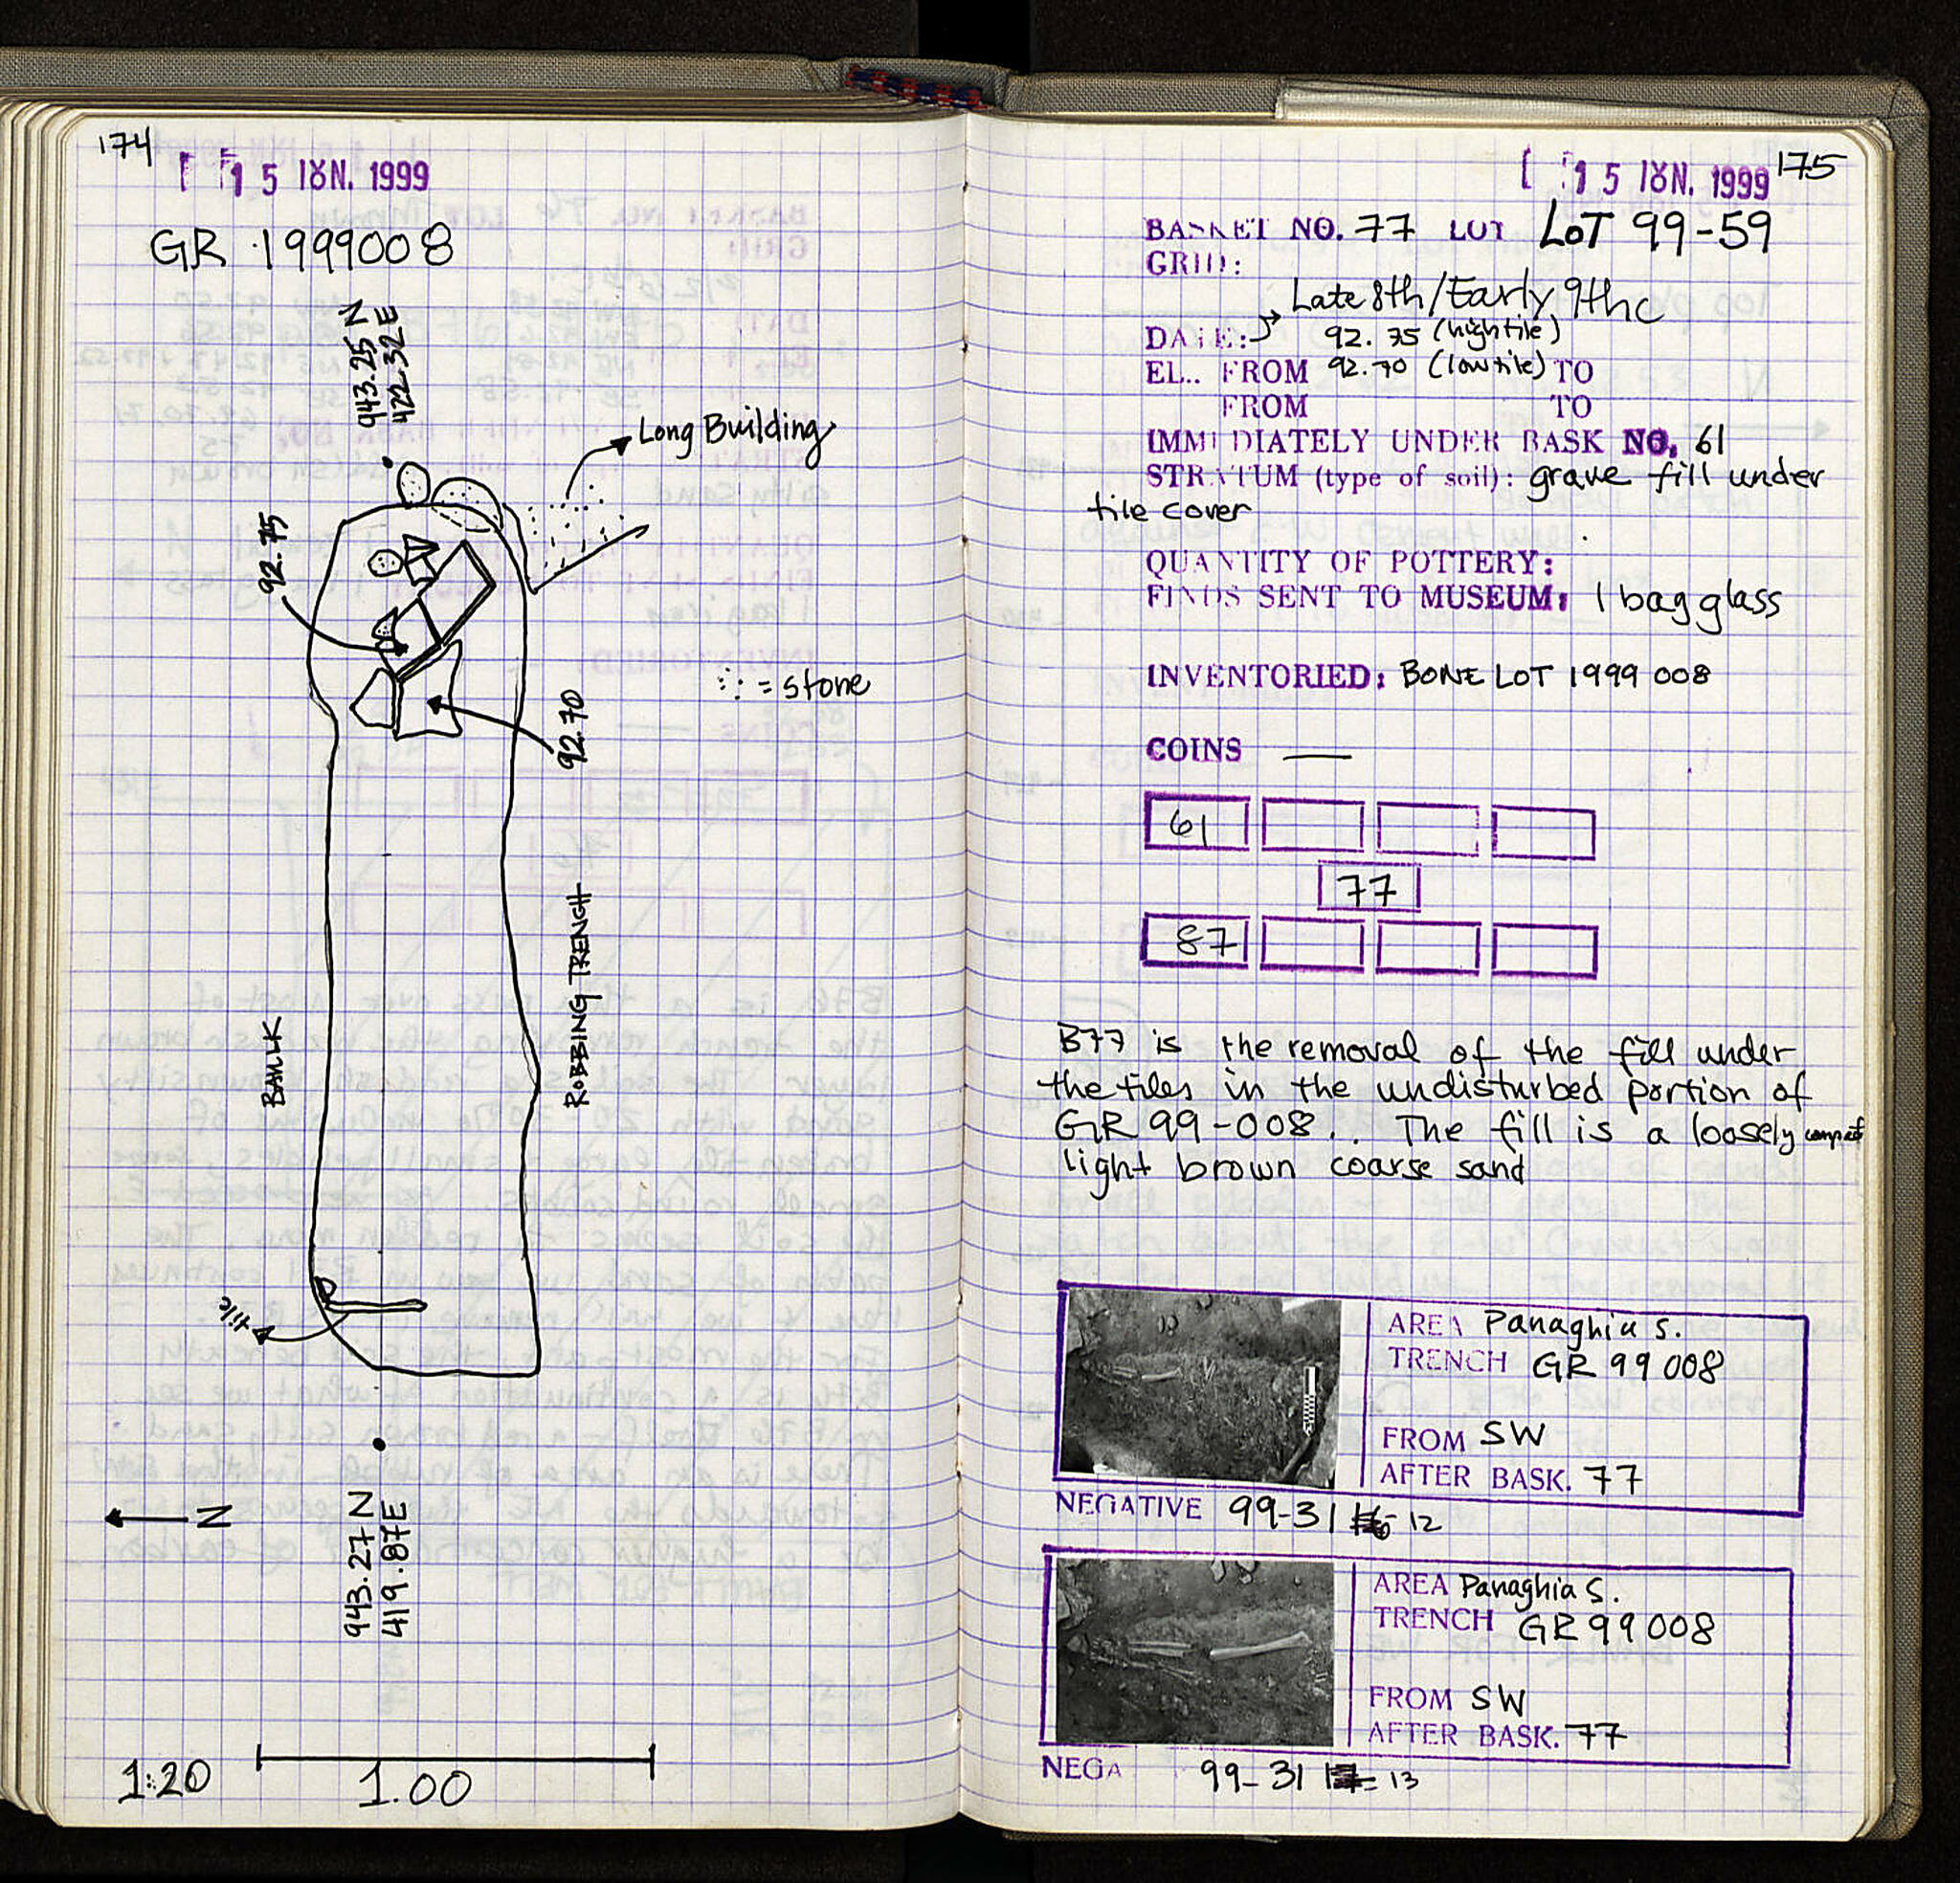 174
15 ΙȣΝ. 1999
GR 1999008
943.25 N
422.32E
Long Building
92.75
= stone
92.70
BAULK
ROBBING TRENCH
tile
N
943.27 N
419.87E
1:20
1.00
15 ΙȣΝ. 1999
175
BASKET NO. 77 LOT LOT 99-59
GRID:
Late 8th/Early 9thc
DATE: 92.75 (high tile)
EL.. FROM 92.70 (low tile) TO
FROM TO
IMMEDIATELY UNDER BASK NO. 61
STRATUM (type of soil): grave fill under
tile cover
QUANTITY OF POTTERY:
FINDS SENT TO MUSEUM: 1 bag glass
INVENTORIED: BONE LOT 1999 008
COINS —
61
77
87
B77 is the removal of the fill under
the tiles in the undisturbed portion of
GR 99-008.. The fill is a loosely compact
light brown coarse sand
AREA Panaghia S.
TRENCH GR 99 008
FROM SW
AFTER BASK. 77
NEGATIVE 99-31 12
AREA Panaghia S.
TRENCH GR 99 008
FROM SW
AFTER BASK. 77
NEGA 99-31 13